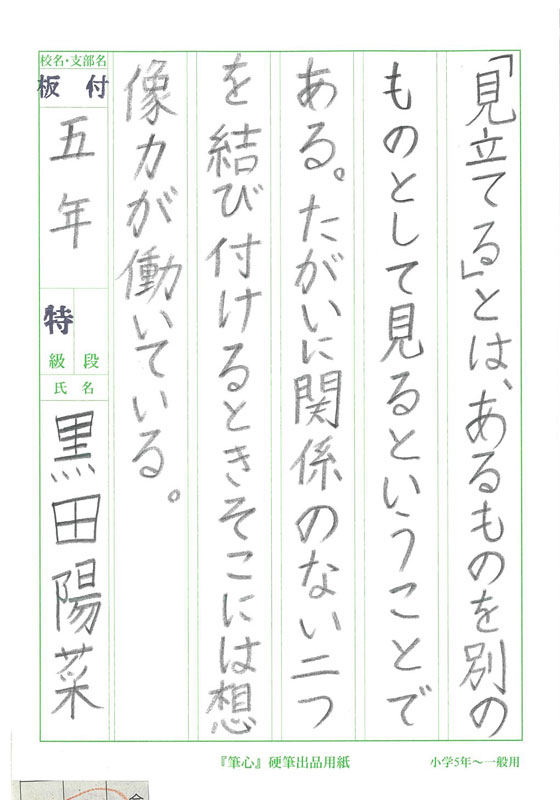 「見立てる」とは、あるものを別の
ものとして見るということで
ある。たがいに関係のない二つ
を結び付けるときそこには想
像力が働いている。
校名・支部名
板付
五年
特
級段
氏名
黒田陽菜
『筆心』硬筆出品用紙
小学5年〜一般用